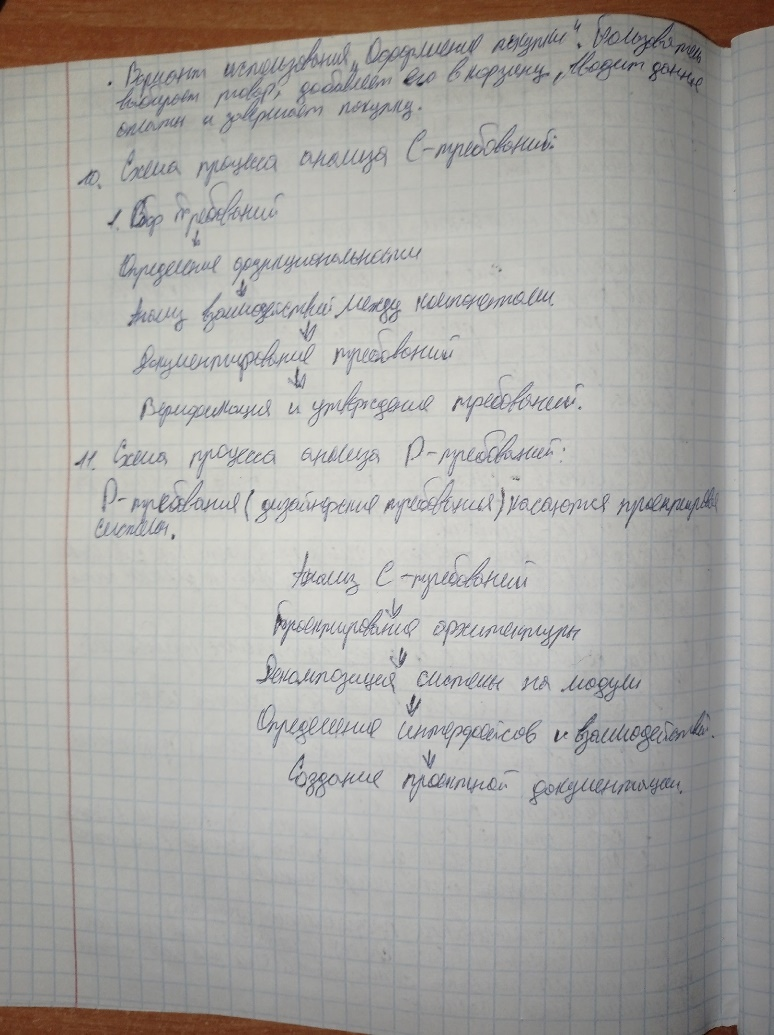 . Вариант использования „Оформление покупки". Пользователь
выбирает товар, добавляет его в корзину, вводит данные
оплаты и завершает покупку.
10. Схема процесса анализа С-требований:
1. Сбор требований
↓
Определение функциональности
↓
Анализ взаимодействий между компонентами
↓
Документирование требований
↓
Верификация и утверждение требований.
11. Схема процесса анализа D-требований:
D-требования (дизайнерские требования) касаются
системы.
Анализ С-требований
↓
Проектирование архитектуры
↓
Декомпозиция системы на модули
↓
Определение интерфейсов и взаимодействий.
↓
Создание проектной документации.